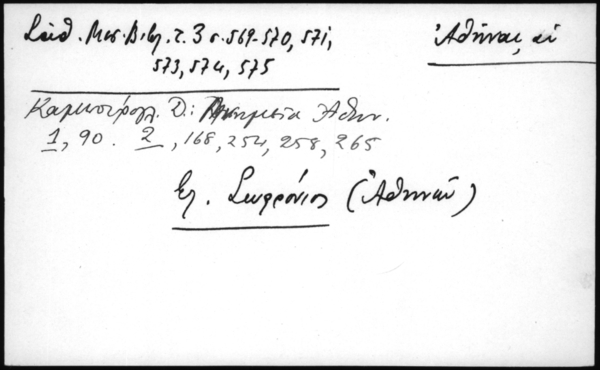 Σάθ. Μεσ. Βιβλ. τ. 3 σ. 569-570, 571,
573, 574, 575
Ἀθῆναι, αἱ
Καμπούρογλ. Δ: Μνημεῖα Ἀθην.
1, 90. 2, 168, 254, 258, 265
Σωφρόνιος (Ἀθηνῶν)